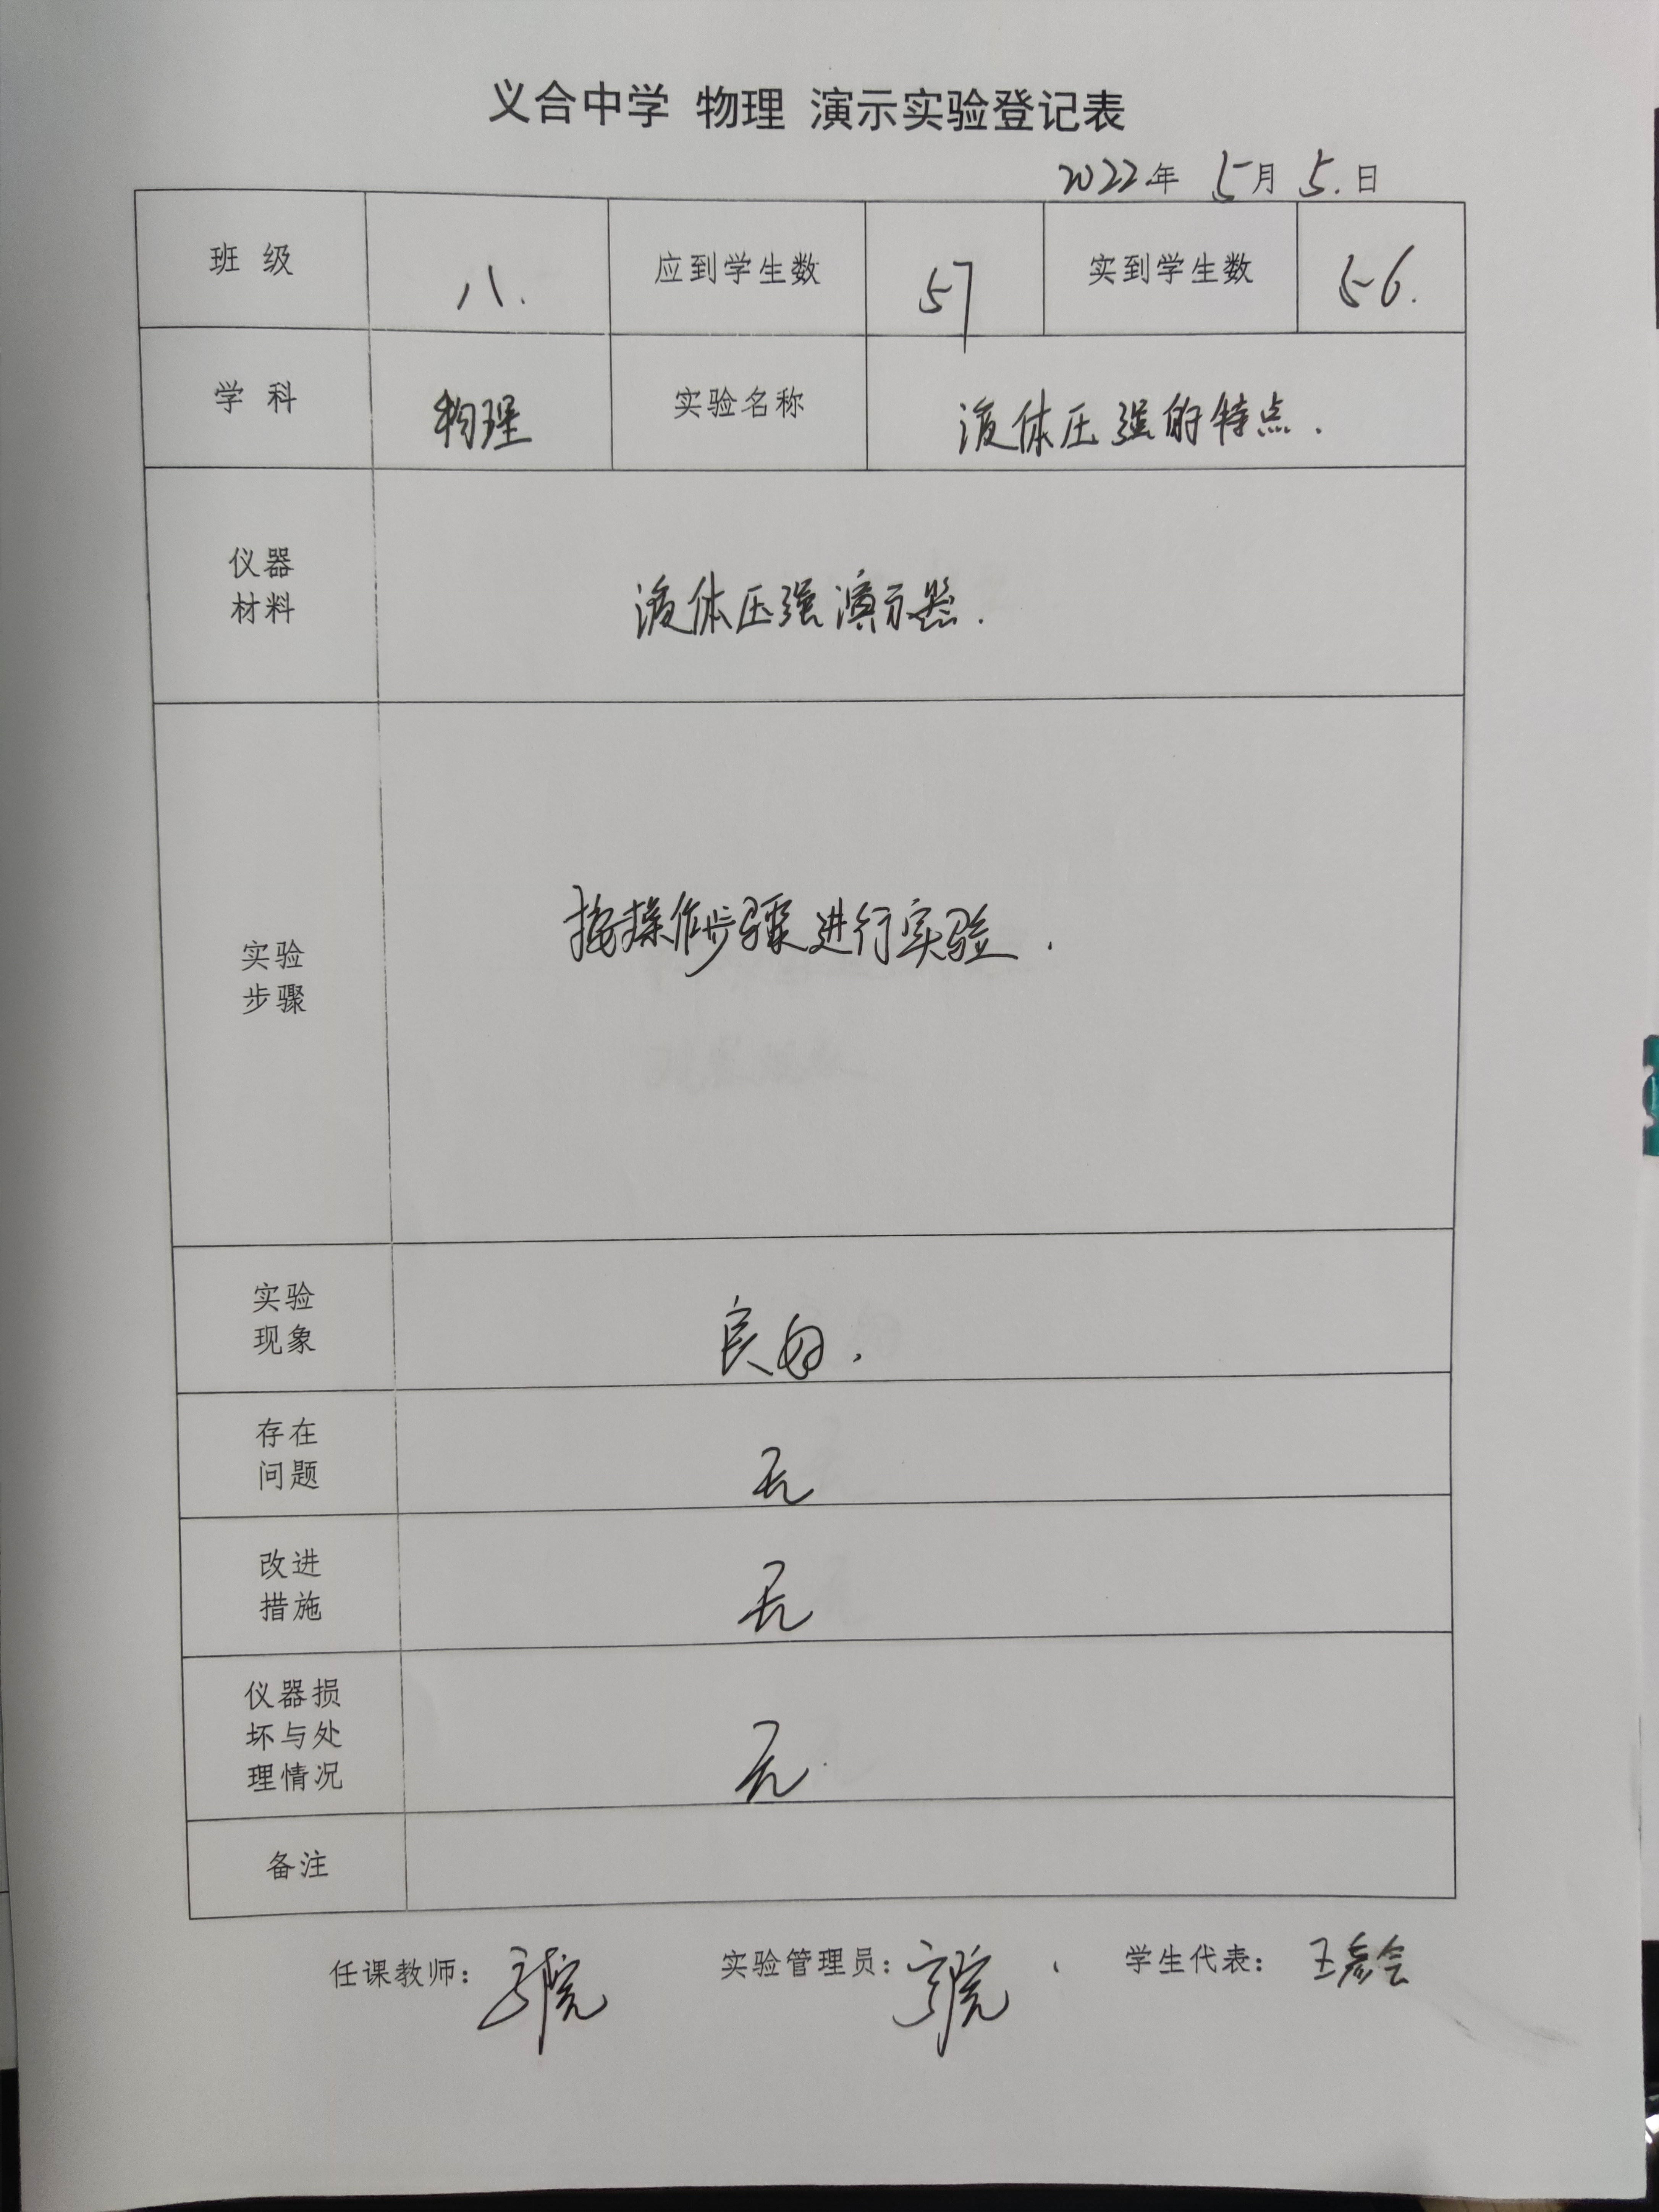 义合中学 物理 演示实验登记表
2022年 5月 5.日
班 级 八. 应到学生数 57 实到学生数 56.
学 科 物理 实验名称 液体压强的特点.
仪器
材料
液体压强演示器.
实验
步骤
按操作步骤进行实验.
实验
现象
良好.
存在
问题
无
改进
措施
无
仪器损
坏与处
理情况
无
备注
任课教师: 实验管理员: 学生代表: 王彦会